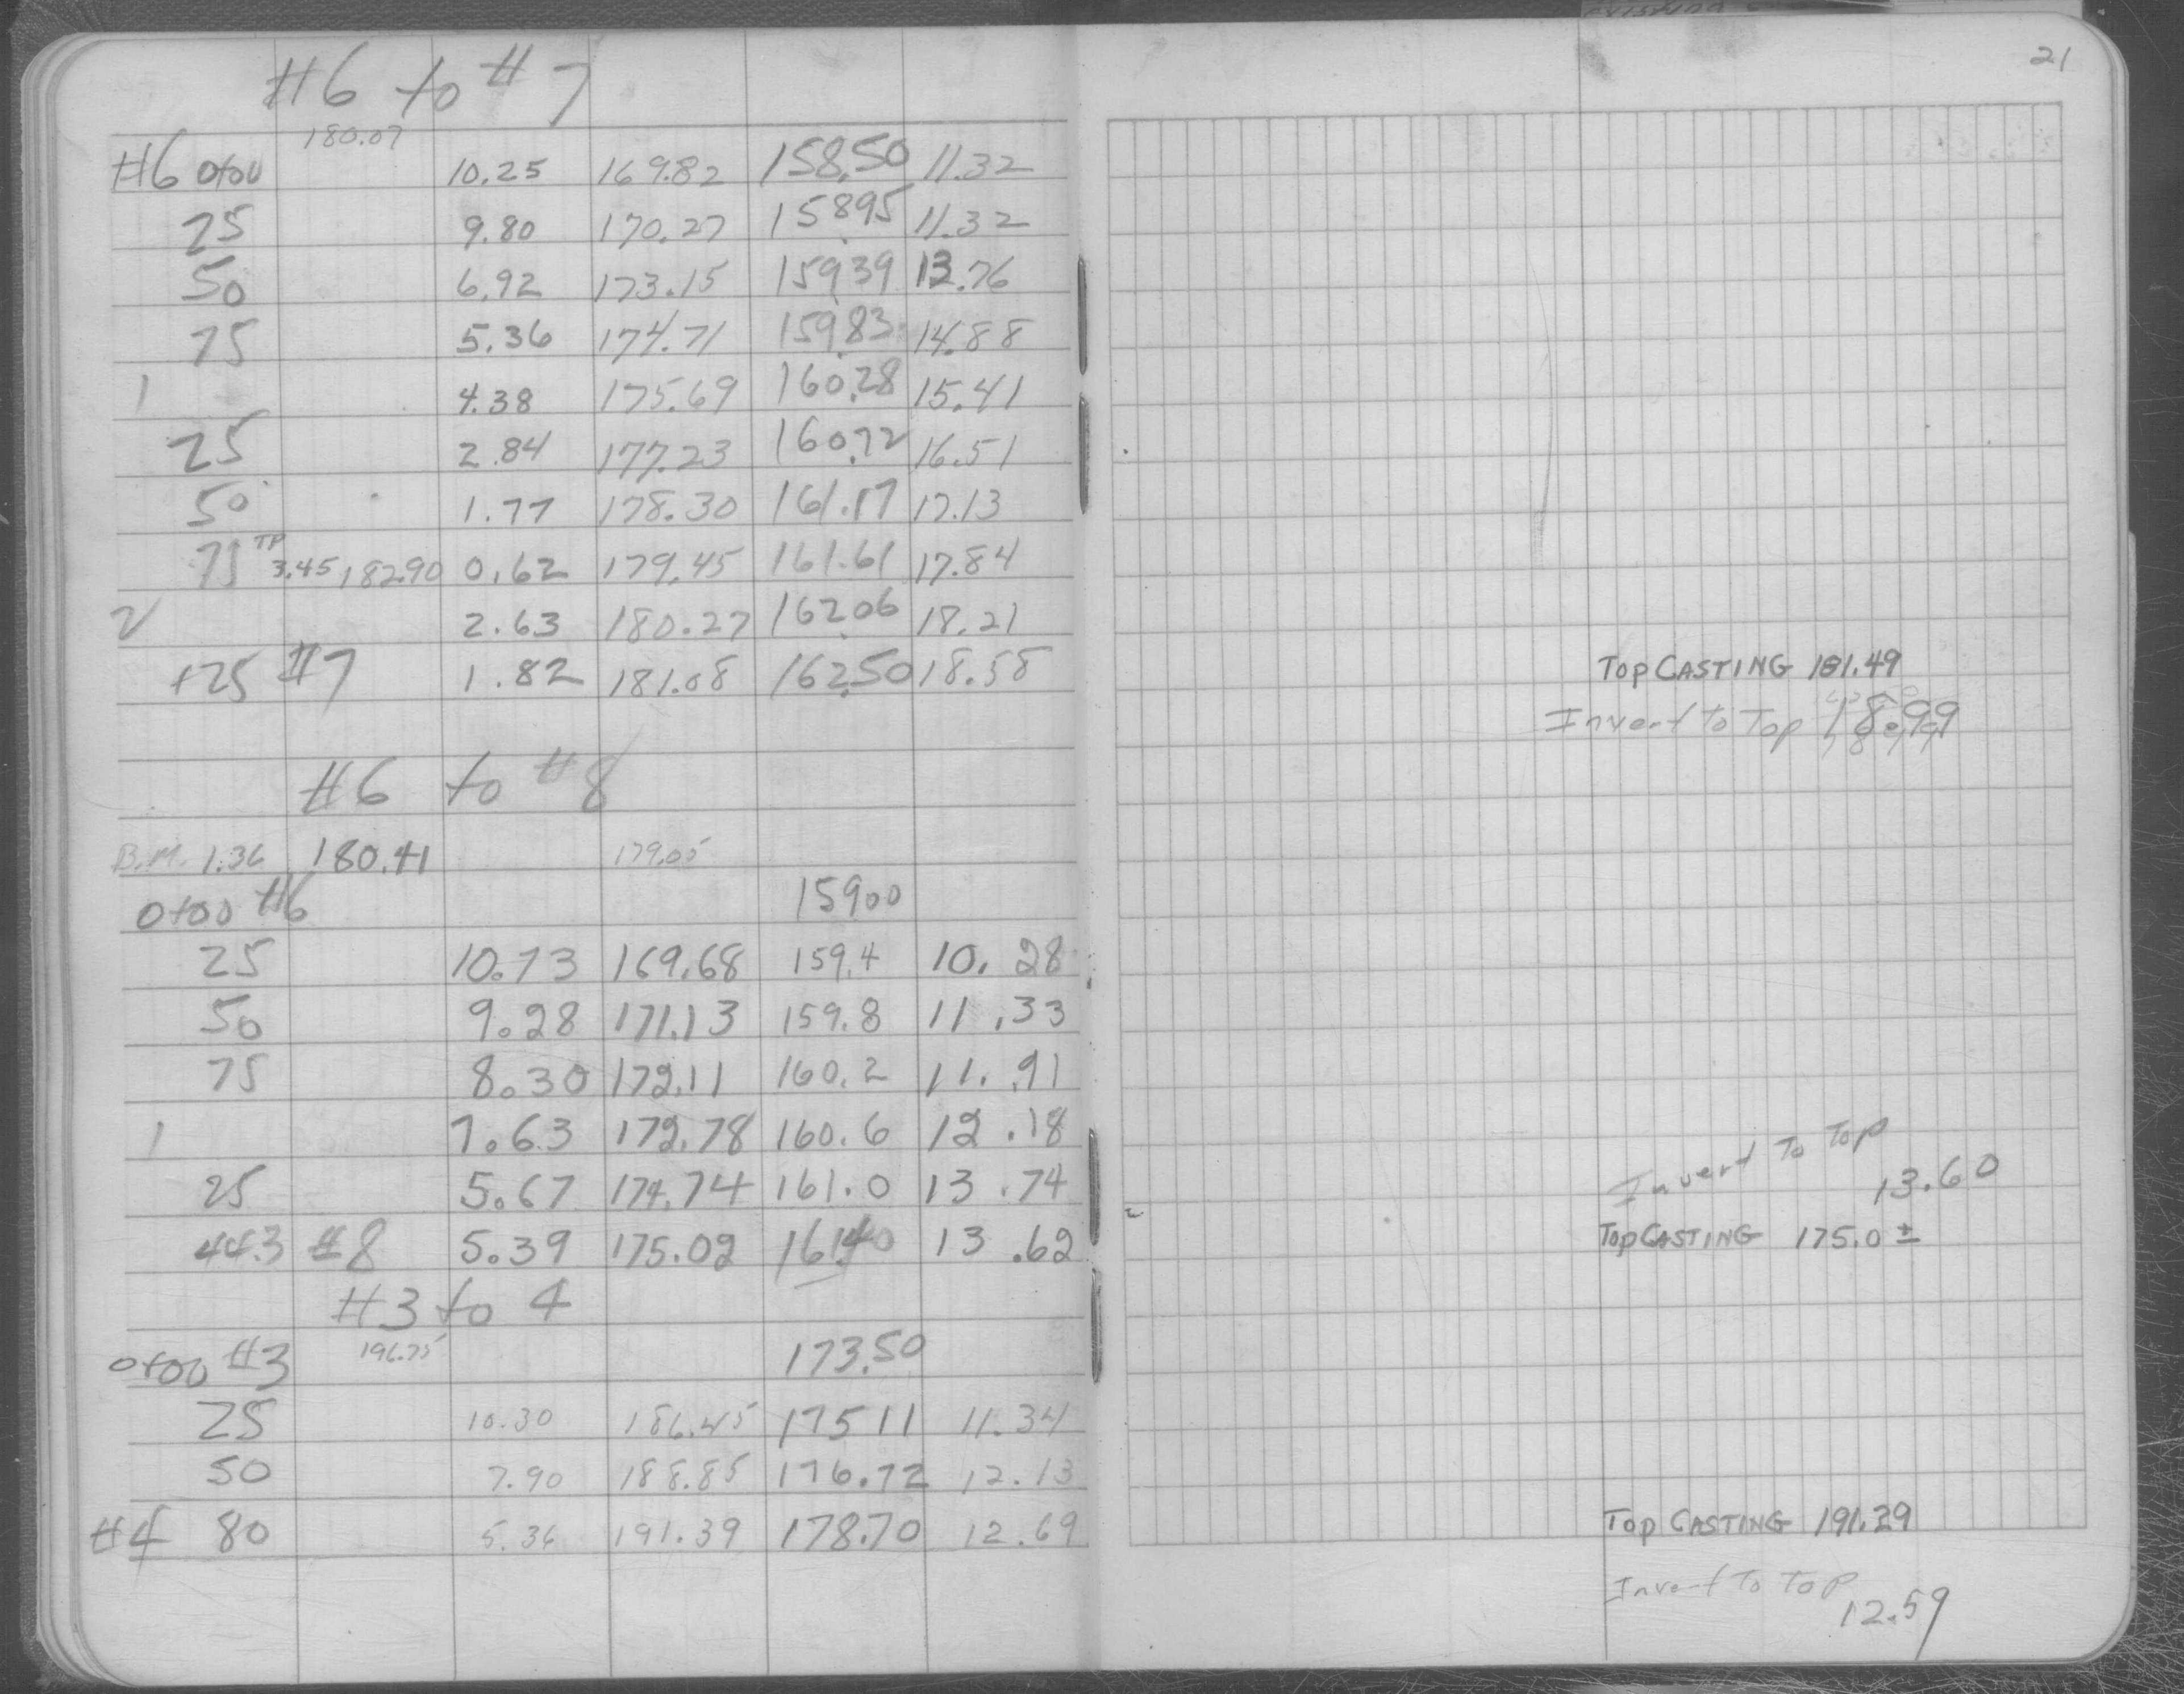 21
#6 to #7
180.07
#6 0+00 10.25 169.82 158.50 11.32
25 9.80 170.27 158.95 11.32
50 6.92 173.15 159.39 13.76
75 5.36 174.71 159.83 14.88
1 4.38 175.69 160.28 15.41
25 2.84 177.23 160.72 16.51
50 1.77 178.30 161.17 17.13
75 TP 3.45 182.90 0.62 179.45 161.61 17.84
2 2.63 180.27 162.06 18.21
+25 #7 1.82 181.08 162.50 18.58 Top CASTING 181.49
Invert to Top 18.99
#6 to #8
B.M. 1.36 180.41 179.05
0+00 #6 159.00
25 10.73 169.68 159.4 10.28
50 9.28 171.13 159.8 11.33
75 8.30 172.11 160.2 11.91
1 7.63 172.78 160.6 12.18
Invert To Top
25 5.67 174.74 161.0 13.74 13.60
44.3 #8 5.39 175.02 161.40 13.62 Top CASTING 175.0 ±
#3 to 4
0+00 #3 196.75 173.50
25 10.30 186.45 175 11 11.34
50 7.90 188.85 176.72 12.13
#4 80 5.36 191.39 178.70 12.69 Top CASTING 191.29
Invert To Top
12.59